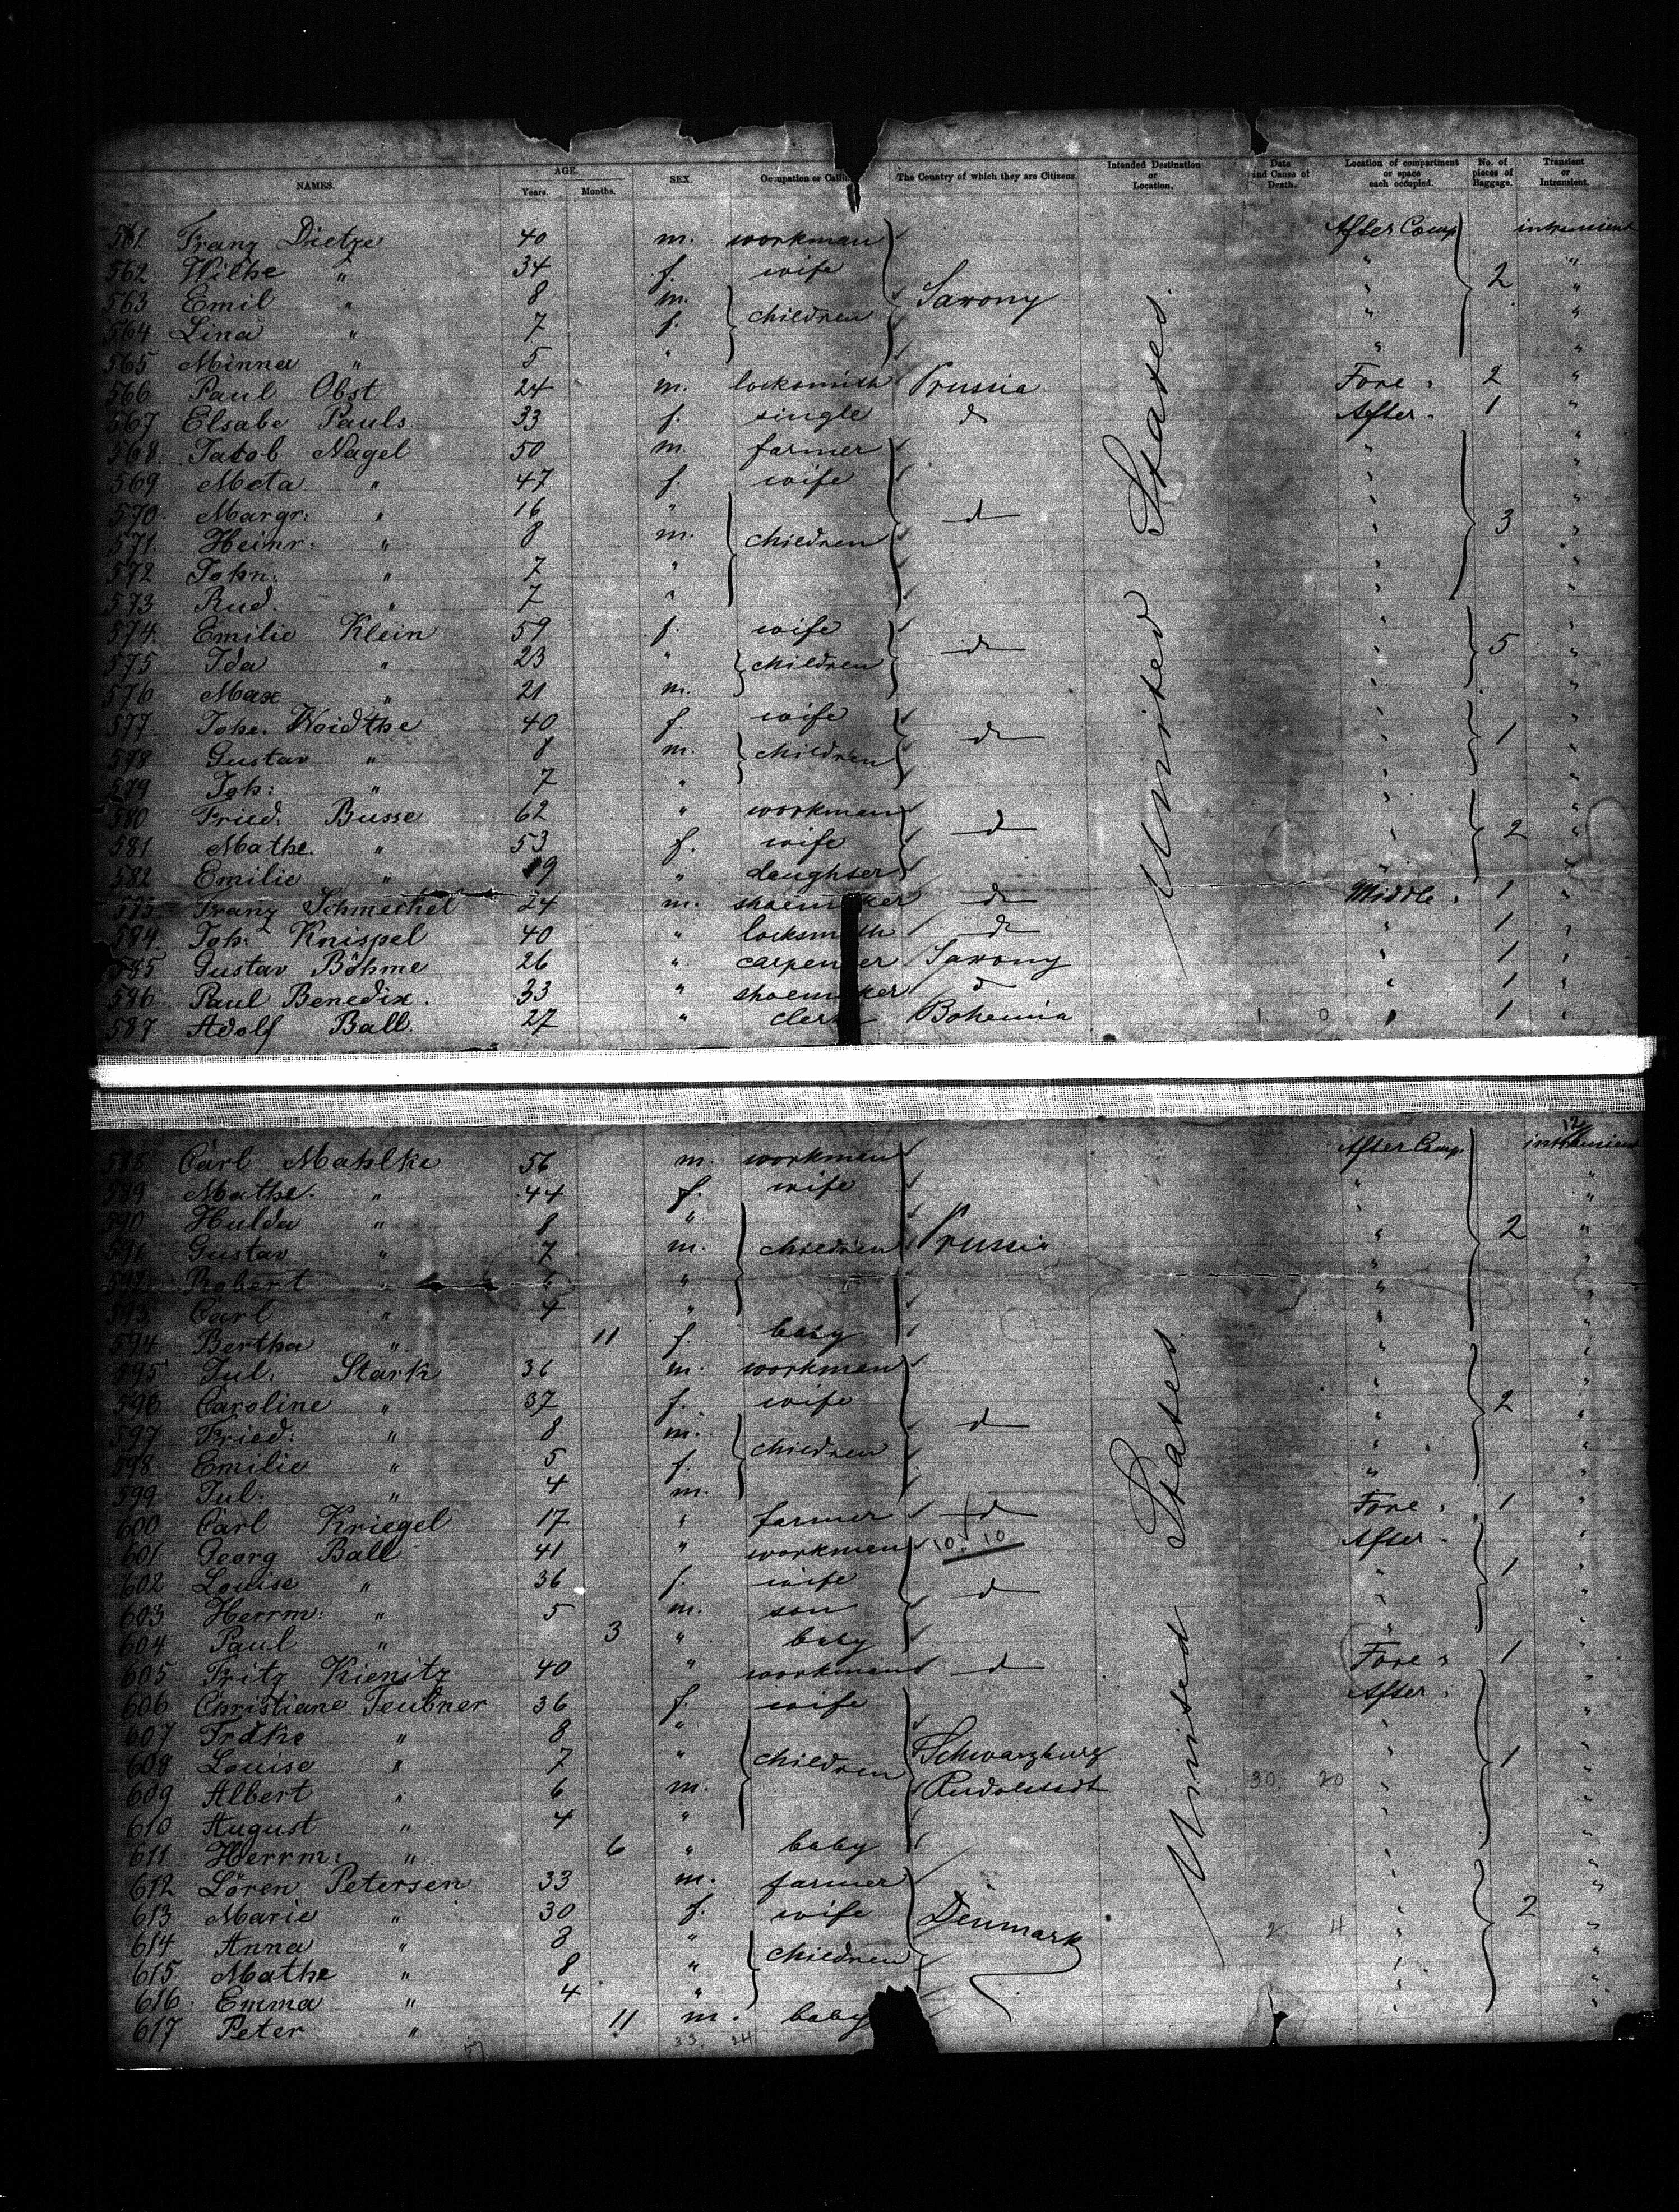 NAMES. AGE. Years. Months. SEX. Occupation or Calling The Country of which they are Citizens. Intended Destination or Location. Date and Cause of Death. Location of compartment or space each occupied. No. of pieces of Baggage. Transient or Intransient.
561. Franz Dietze 40 m. workman After Comp intransient
562 Wilhe " 34 f. wife " 2 "
563 Emil " 8 m. children Saxony " "
564 Lina " 7 f. " "
565 Minna " 5 " " "
566 Paul Obst 24 m. locksmith Prussia Fore " 2 "
567 Elsabe Pauls. 33 f. single d After " 1 "
568 Jakob Nagel 50 m. farmer " "
569 Meta " 47 f. wife " "
570. Margr: " 16 " d " "
571. Heinr: " 8 m. children " 3 "
572 John: " 7 " " "
573 Rud. " 7 " " "
574. Emilie Klein 59 f. wife " "
575 Ida " 23 " children d " 5 "
576 Max " 21 m. " "
577. Johe. Woidthe 40 f. wife " "
578 Gustav " 8 m. children d " 1 "
579 Joh: " 7 " " "
580 Fried. Busse 62 " workman " "
581 Mathe. " 53 f. wife d " 2 "
582 Emilie " 19 " daughter " "
583. Franz Schmechel 24 m. shoemaker d Middle " 1 "
584. Joh: Knispel 40 " locksmith d " 1 "
585 Gustav Böhme 26 " carpenter Saxony " 1 "
586 Paul Benedix. 33 " shoemaker d " 1 "
587 Adolf Ball. 27 " clerk Bohemia 1 0 " 1 "
United States.
12
588 Carl Mahlke 56 m. workman After Comp. intransient
589 Mathe. " 44 f. wife " "
590 Hulda " 8 " " 2 "
591 Gustav " 7 m. children Prussia " "
592 Robert " 6 " " "
593. Carl " 4 " " "
594. Bertha " 11 f. baby " "
595 Jul. Stark 36 m. workman " "
596 Caroline " 37 f. wife " 2 "
597 Fried: " 8 m. children d " "
598 Emilie " 5 f. " "
599 Jul. " 4 m. " "
600 Carl Kriegel 17 " farmer d Fore " 1 "
601 Georg Ball 41 " workman 10. 10 After "
602 Louise " 36 f. wife d " 1 "
603 Herrm: " 5 m. son " "
604 Paul " 3 " baby " "
605 Fritz Kienitz 40 " workman d Fore " 1 "
606 Christiane Teubner 36 f. wife After "
607 Frdke " 8 " " "
608 Louise " 7 " children Schwarzburg " 1 "
609 Albert " 6 m. Rudolstadt 30. 20 " "
610 August " 4 " " "
611 Herrm: " 6 " baby " "
612 Lören Petersen 33 m. farmer "
613 Marie " 30 f. wife Denmark 2. 4 " 2 "
614 Anna " 8 " children " "
615 Mathe " 8 " " "
616. Emma " 4 " " "
617 Peter " 11 m. baby " "
33. 24
United States